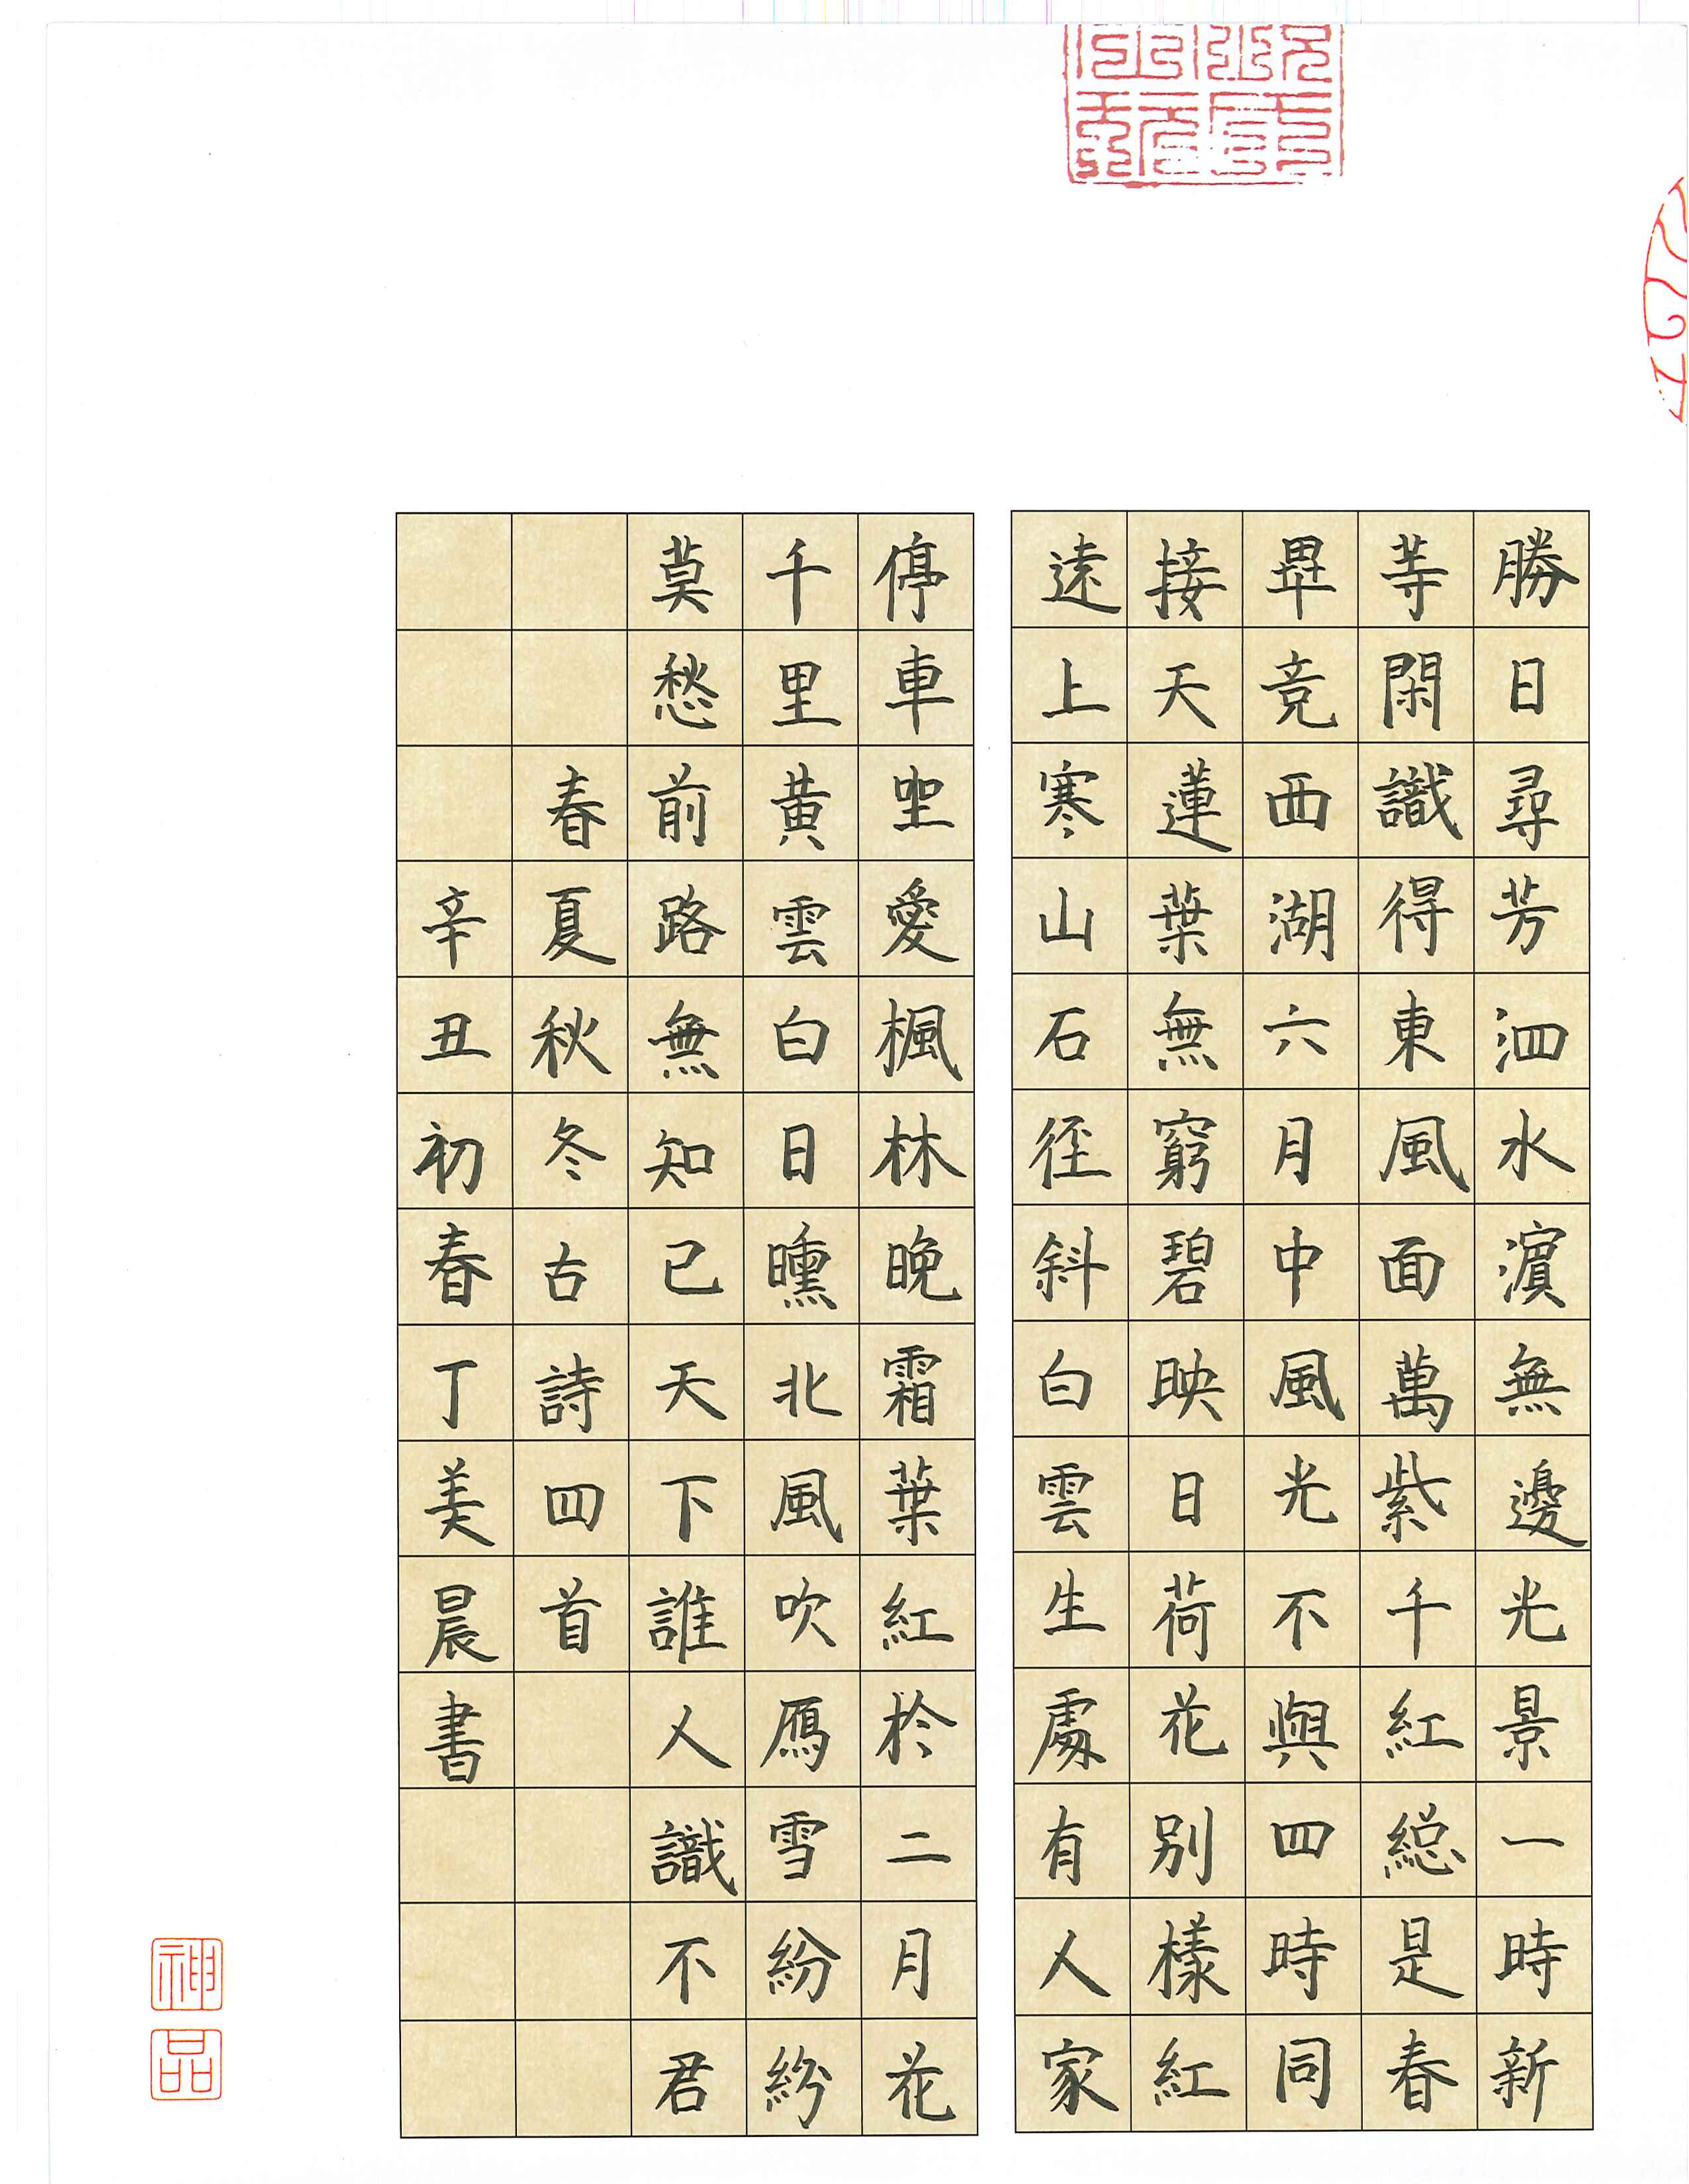 勝日尋芳泗水濵無邊光景一時新
等閑識得東風面萬紫千紅緫是春
畢竟西湖六月中風光不與四時同
接天蓮葉無窮碧映日荷花别樣紅
遠上寒山石径斜白雲生處有人家
停車坐愛楓林晚霜葉紅於二月花
千里黄雲白日曛北風吹鴈雪紛紛
莫愁前路無知己天下誰人識不君
春夏秋冬古詩四首
辛丑初春丁美晨書
神
品